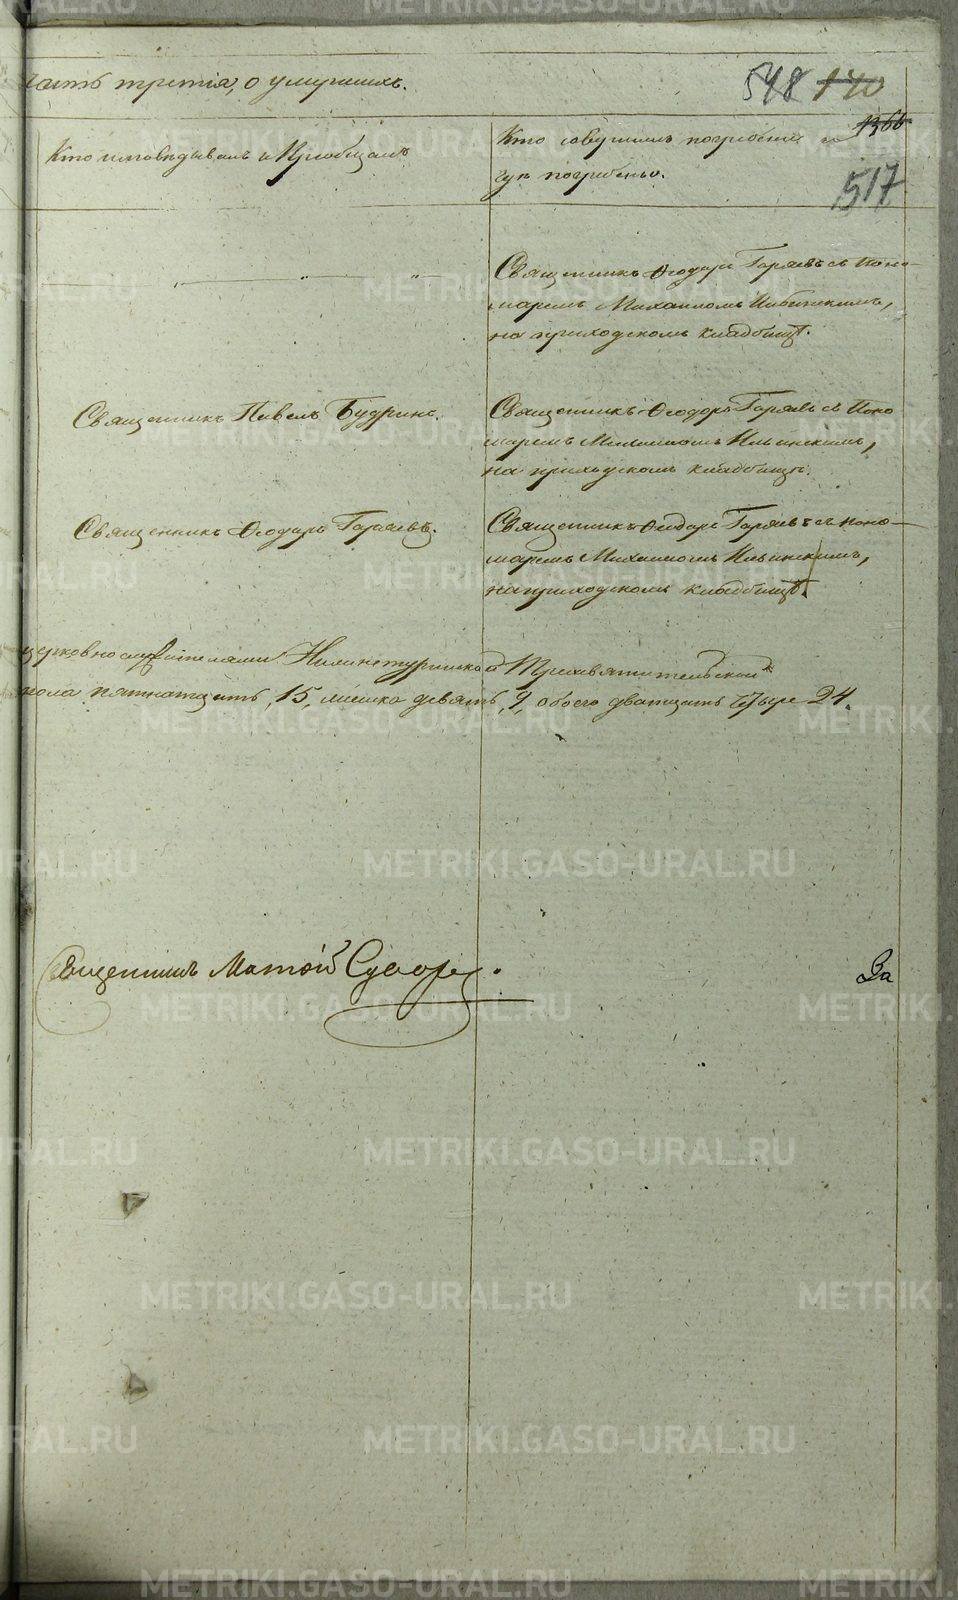 часть третія, о умершихъ.
548 140
1366
Кто исповѣдывалъ и Пріобщалъ
Кто совершилъ погребеніе и
гдѣ погребены.
517
Священникъ Ѳеодоръ Гаряевъ съ Поно-
маремъ Михаиломъ Ильинскимъ,
на приходскомъ кладбищѣ.
Священникъ Павелъ Будринъ.
Священникъ Ѳеодоръ Гаряевъ съ Поно
маремъ Михаиломъ Ильинскимъ,
на приходскомъ кладбищѣ.
Священникъ Ѳеодоръ Гаряевъ.
Священникъ Ѳеодоръ Гаряевъ съ поно-
маремъ Михаиломъ Ильинскимъ,
на приходскомъ кладбищѣ.
церковнослужителями Нижнетуринской Трехсвятительской
пола пятнатцать, 15, женска девять, 9, обоего дватцать четыре 24.
Священникъ Матѳій Суворов.
За
METRIKI.GASO-URAL.RU